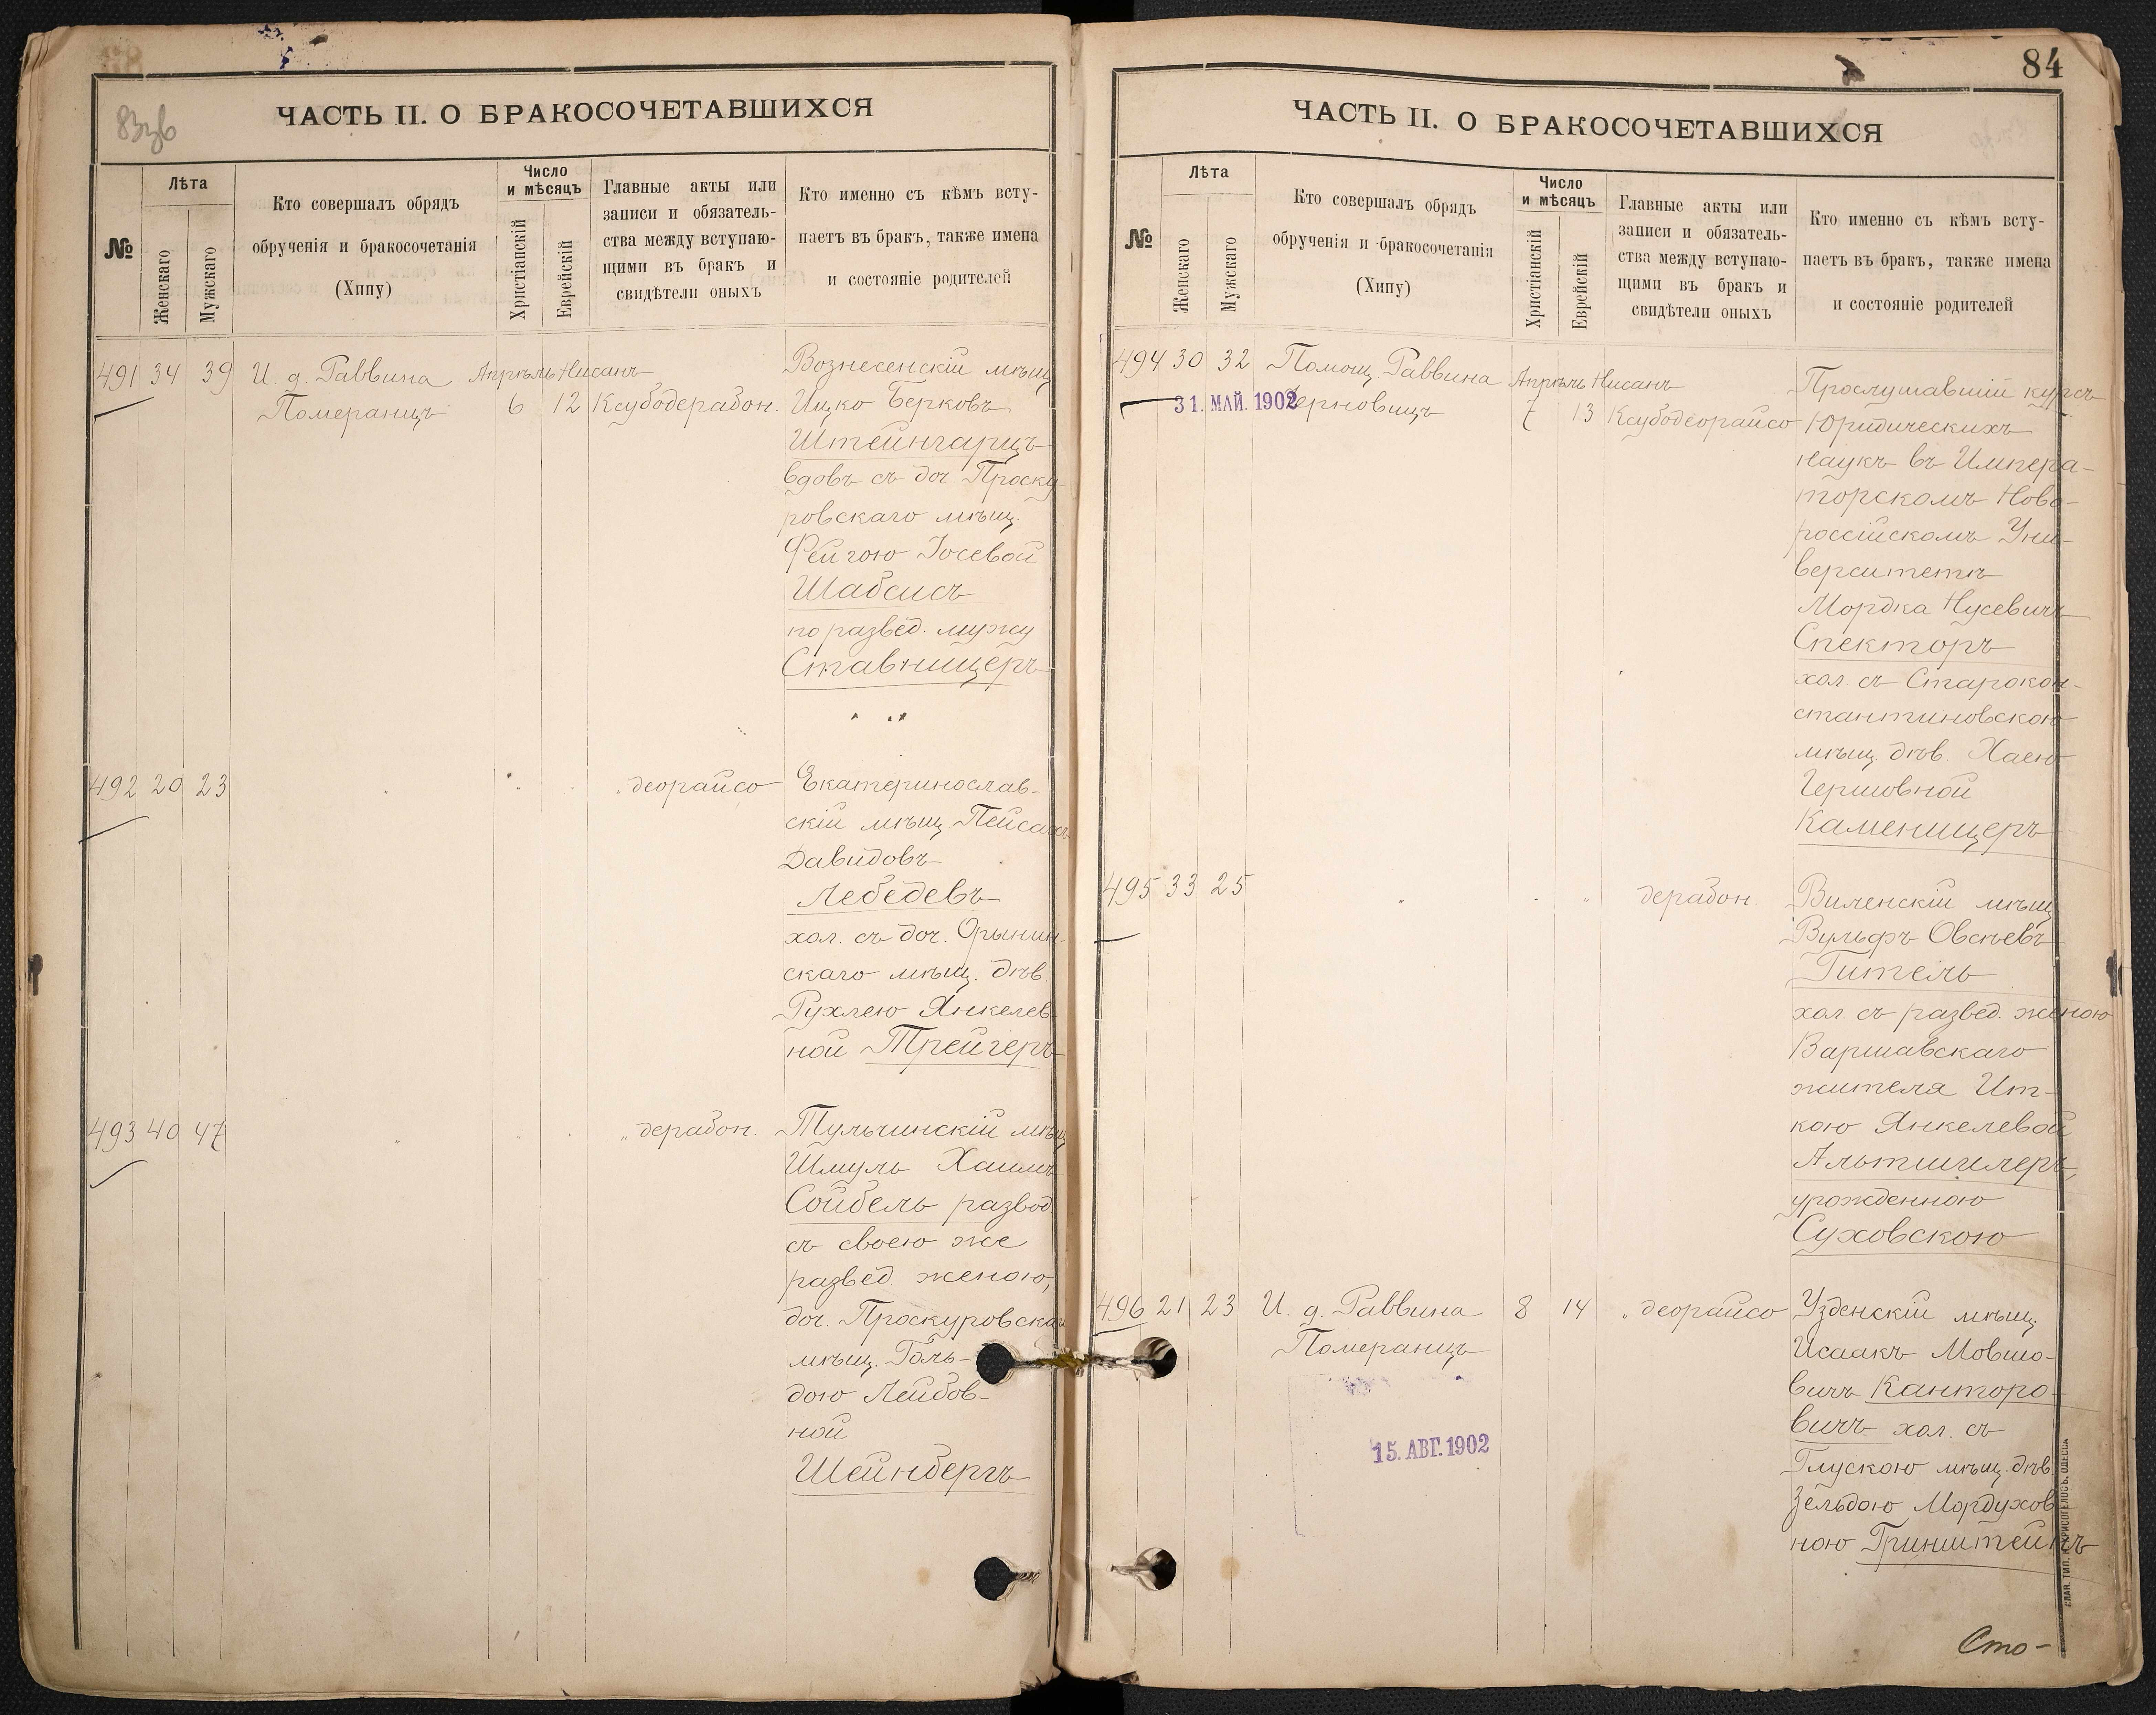 83зв
ЧАСТЬ II. О БРАКОСОЧЕТАВШИХСЯ
№
Лѣта
Женскаго
Мужскаго
Кто совершалъ обрядъ
обрученія и бракосочетанія
(Хипу)
Число
и мѣсяцъ
Христіанскій
Еврейскій
Главные акты или
записи и обязатель-
ства между вступаю-
щими въ бракъ и
свидѣтели оныхъ
Кто именно съ кѣмъ всту-
паетъ въ бракъ, также имена
и состояніе родителей
491 34 39 И. д. Раввина Апрѣль Нисанъ Вознесенскій мѣщ.
Померанцъ 6 12 Ксубодерабон. Ицко Берковъ
Штейнгарцъ
вдовъ съ доч. Проску
ровскаго мѣщ.
Фейгою Іосевой
Шабсисъ
по развед. мужу
Ставницеръ
492 20 23 " деорайсо Екатеринослав-
скій мѣщ. Пейсахъ
Давидовъ
Лебедевъ
хол. съ доч. Орынин-
скаго мѣщ. дѣв.
Рухлею Янкелев-
ной Трейгеръ
493 40 47 " " " дерабон. Тульчинскій мѣщ
Шмуль Хаимъ
Сойбель развод.
съ своею же
развед. женою,
доч. Проскуровскаго
мѣщ. Голь-
дою Лейбов-
ной
Шейнбергъ
84
ЧАСТЬ II. О БРАКОСОЧЕТАВШИХСЯ
№
Лѣта
Женскаго
Мужскаго
Кто совершалъ обрядъ
обрученія и бракосочетанія
(Хипу)
Число
и мѣсяцъ
Христіанскій
Еврейскій
Главные акты или
записи и обязатель-
ства между вступаю-
щими въ бракъ и
свидѣтели оныхъ
Кто именно съ кѣмъ всту-
паетъ въ бракъ, также имена
и состояніе родителей
494 30 32 Помощ. Раввина Апрѣль Нисанъ Прослушавшій курсъ
31. МАЙ. 1902 Черновицъ 7 13 Ксубодеорайсо Юридическихъ
наукъ въ Импера-
торскомъ Ново-
россійскомъ Уни-
верситетѣ
Мордка Нусевичъ
Спекторъ
хол. съ Старокон-
стантиновскою
мѣщ. дѣв. Хаею
Гершовной
Каменицеръ
495 33 25 " " " дерабон. Виленскій мѣщ.
Вульфъ Овсѣевъ
Гитель
хол. съ развед. женою
Варшавскаго
жителя Ит-
кою Янкелевой
Альтшилеръ,
урожденною
Суховскою
496 21 23 И. д. Раввина 8 14 " деорайсо Узденскій мѣщ.
Померанцъ Исаакъ Мовшо-
вичъ Канторо-
вичъ хол. съ
15. АВГ. 1902
Глускою мѣщ. дѣв.
Зельдою Мордухов
ною Гринштейнъ
Сто-